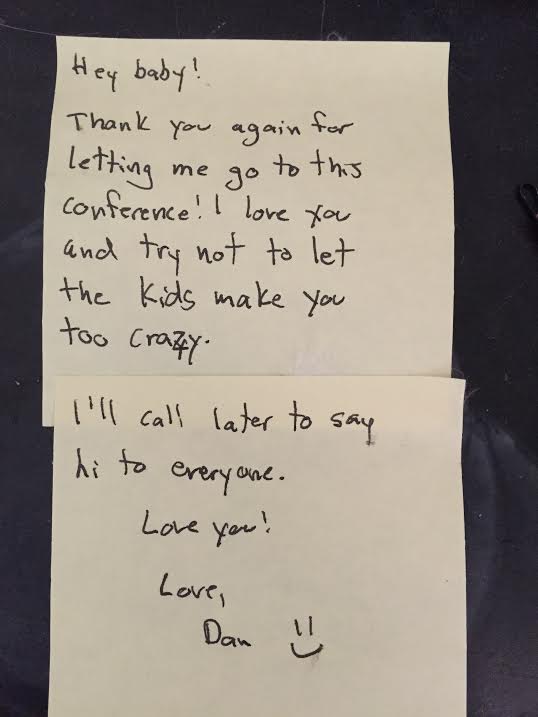 Hey baby!
Thank you again for
letting me go to this
conference! I love you
and try not to let
the kids make you
too crazy.
I'll call later to say
hi to everyone.
Love you!
Love,
Dan